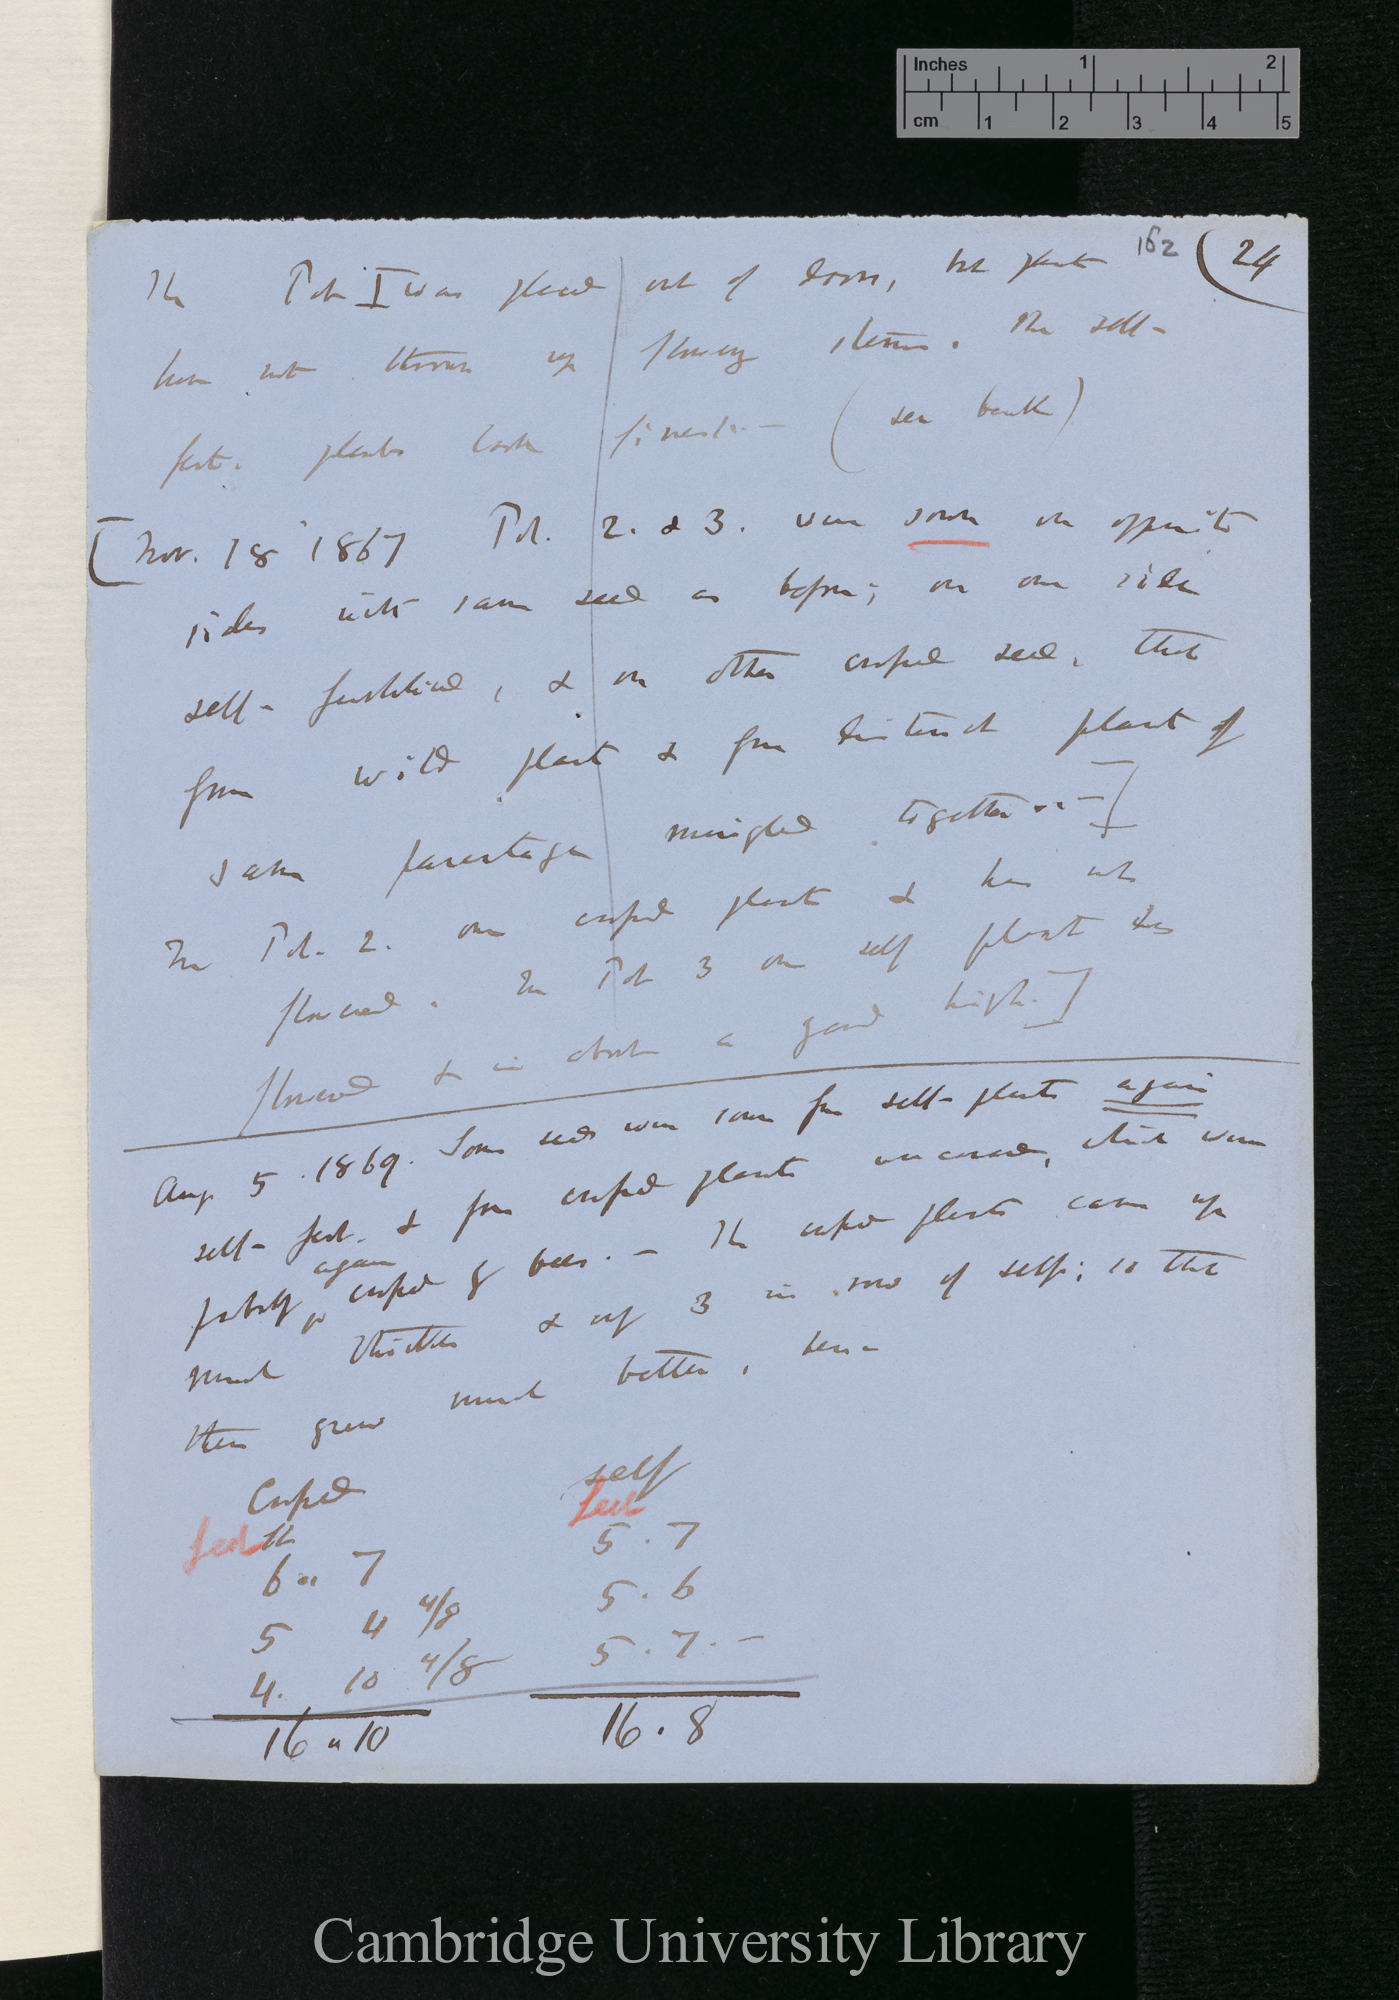 Inches 1 2
cm 1 2 3 4 5
162 (24
The Pot I was placed out of doors, but plants
have not thrown up flowering stems. The self-
fert. plants look finest.— (see back)
[Nov. 18 1867 Pot. 2. & 3. were sown on opposite
sides with same seed as before; on one side
self-fertilised, & on other crossed seed, that
from wild plant & from distinct plant of
same parentage mingled together.—]
In Pot. 2. one crossed plant & has not
flowered. In Pot 3 one self plant has
flowered & is about a good high.]
Aug 5. 1869. Some seeds were sown from self-plants again
self-fert. & from crossed plants uncovered, which were
probably again crossed by bees.— The crossed plants came up
much thicker & only 3 in row of self; so that
these grew much better,
Crossed self
feet feet
6 " 7 5 . 7
5 4 4/8 5 . 6
4. 10 4/8 5 . 7 . —
16 " 10 16 . 8
Cambridge University Library